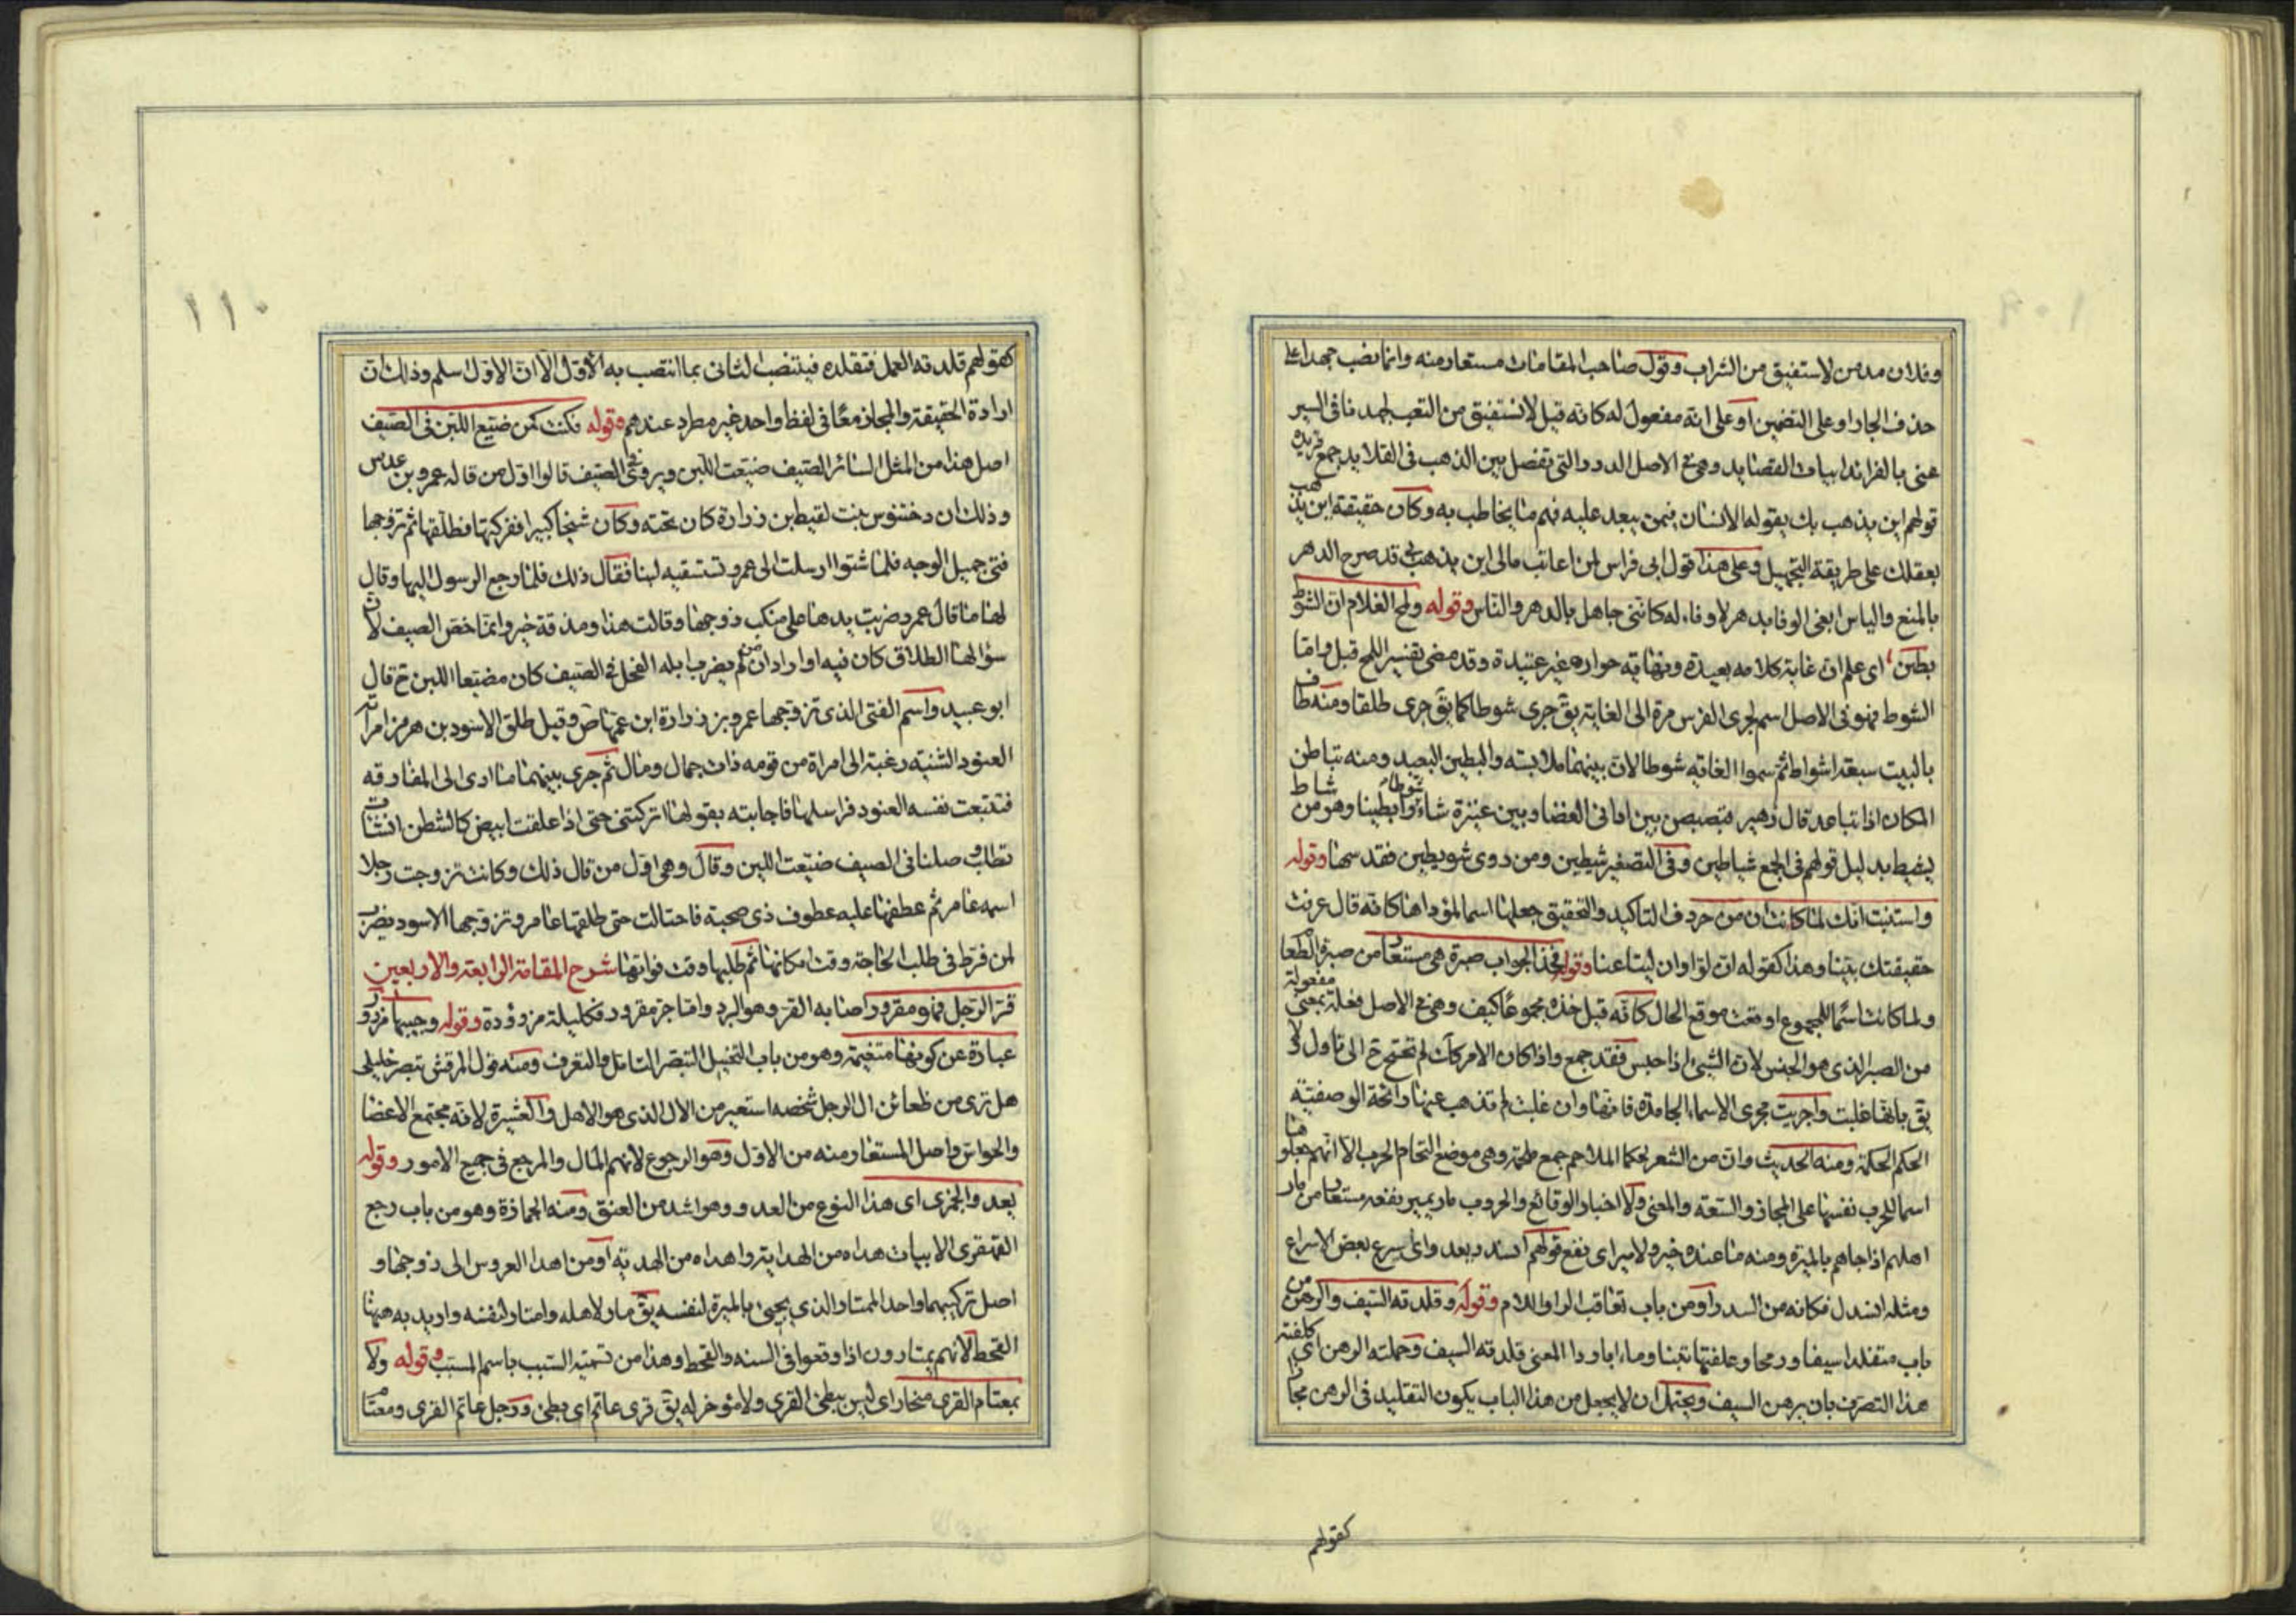 وفلان مدمن لا ستفيق من الشراب وقول صاحب المقامات مستعار منه وانما نصب جهدا على
حذف الجار او على التضمين او على انه مفعول له كانه قيل لا نستفيق من التعب لجهدنا في السير
عنى بالفرائد ابيات القصايد وهي في الاصل الدرر التي تفصل بين الذهب في القلايد جمع فريدة
قولهم اين يذهب بك يقوله الانسان فيمن يبعد عليه فهم ما يخاطب به وكان حقيقة اين يذهب
بعقلك على طريقة التجهيل وعلى هذا قول ابى فراس لمن اعاتب مالى اين يذهب بي قد صرح الدهر
بالمنع والياس ابغى الوفا بدهر لا وفاء له كاننى جاهل بالدهر والناس وقوله ولمح الغلام ان الشوط
بطين اى علم ان غاية كلامه بعيدة ونهاية حواره غير عتيدة وقد مضى تفسير اللمح قبل واما
الشوط فهو في الاصل اسم لجرى الفرس مرة الى الغاية يق جرى شوطا كما يق جرى طلقا ومنه طاف
بالبيت سبعة اشواط ثم سموا الغاية شوطا لان بينهما ملابسته والبطين البعيد ومنه تباطن
المكان اذا تباعد قال زهير فبصبصن بين ادانى الغضا وبين عنيزة شاءوا بطينا وهو من شاط
يشيط بدليل قولهم في الجمع شياطين وفي التصغير شيطين ومن روى شويطين فقد سها وقوله
واستنبت انك لما كانت ان من حروف التاكيد والتحقيق جعلها اسما لمؤداها كانه قال عرفت
حقيقتك يقينا وهذا كقوله ان لوا وان ليتا عنا وقوله فخذ الجواب صبرة هى مستعار من صبرة الطعام
ولما كانت اسما للمجموع اوقعت موقع الحال كانه قيل خذه مجموعا كيف وهي في الاصل فعلة بمعنى مفعولة
من الصبر الذى هو الحبس لان الشيئ اذا حبس فقد جمع واذا كان الامر كك لم تحتج ح الى تاول ولا
يق بانها غلبت واجريت مجرى الاسماء الجامدة فانها وان غلبت لم تذهب عنها رائحة الوصفية
الحكم الحكمة ومنه الحديث وان من الشعر لحكما الملاحم جمع ملحمة وهى موضع التحام الحرب الا انهم جعلوها
اسما للحرب نفسها على المجاز والسعة والمعنى ولا اخبار الوقائع والحروب مار يمير نفعه مستعار من مار
اهلهم اذا جاهم بالميرة ومنه ما عنده خير ولا مير اى نفع قولهم انسدر يعدو اى اسرع بعض الاسراع
ومثله انسدل فكانه من السدر او من باب تعاقب الراء واللام وقوله وقلدته السيف والرهن من
باب متقلدا سيفا ورمحا وعلفتها تبنا وماء باردا المعنى قلدته السيف وحملته الرهن اى كلفته
هذا التصرف بان يرهن السيف ويحتمل ان لا يجعل من هذا الباب يكون التقليد في الرهن مجازا
كقولهم
١١٠
كقولهم قلدته العمل فتقلده فينتصب الثانى بما انتصب به الاول الا ان الاول سلم وذلك ان
ارادة الحقيقة والمجاز معا في لفظ واحد غير مطرد عندهم وقوله فكنت كمن ضيع اللبن في الصيف
اصل هذا من المثل السائر الصيف ضيعت اللبن ويروى في الصيف قالوا اول من قاله عمرو بن عدس
وذلك ان دختنوس بنت لقيط بن زرارة كان تحته وكان شيخا كبيرا ففركتها فطلقها ثم تزوجها
فتى جميل الوجه فلما شتوا ارسلت الى عمرو تستسقيه لبنا فقال ذلك فلما رجع الرسول اليها وقال
لها ما قال عمرو ضربت يدها على منكب زوجها وقالت هذا ومذقة خير وانما خص الصيف لان
سؤالها الطلاق كان فيه او اراد ان من لم يضرب ابله الفحل في الصيف كان مضيعا اللبن ح قال
ابو عبيد واسم الفتى الذى تزوجها عمرو بن زرارة ابن عمها وقيل طلق الاسود بن هرمز امراته
العنود الشنية رغبة الى امراة من قومه ذات جمال ومال ثم جرى بينهما ما ادى الى المفارقه
فتتبعت نفسه العنود فراسلها فاجابته بقولها اتركتنى حتى اذا علقت ابيض كالشطن انشات
تطلب وصلنا في الصيف ضيعت اللبن وقال وهى اول من قال ذلك وكانت تزوجت رجلا
اسمه عامر ثم عطفها عليه عطوف ذى صحبة فاحتالت حتى طلقها عامر وتزوجها الاسود يضرب
لمن فرط في طلب الحاجة وقت امكانها ثم طلبها وقت فواتها شرح المقامة الرابعة والاربعين
قر الرجل فهو مقرور اصابه القر وهو البرد واما جر مقرور فكليلة مزوودة وقوله وجيبها مزرور
عبارة عن كونها متغيمة وهو من باب التخييل التبصر التامل والتعرف ومنه قول المرقش تبصر خليلى
هل ترى من ظعائن ال الرجل شخصه استعير من الال الذى هو الاهل والعشيرة لانه مجتمع الاعضا
والحواس واصل المستعار منه من الاول وهو الرجوع لانهم المال والمرجع في جميع الامور وقوله
يعدو الجمزى اى هذا النوع من العدو وهو اشد من العنق ومنه الجمازة وهو من باب رجع
القهقرى الابيات هداه من الهداية واهداه من الهدية او من اهدا العروس الى زوجها و
اصل تركيبهما واحد الممتار الذى يجيئ بالميرة لنفسه يق مار لاهله وامتار لنفسه واريد به ههنا
القحط لانهم يمتارون اذا وقعوا في السنه والقحط وهذا من تسمية السبب باسم المسبب وقوله ولا
بمعتام القرى منحار اى ليس ببطئ القرى ولا مؤخر له يق قرى عاتم اى بطئ ورجل عاتم القرى ومعتام